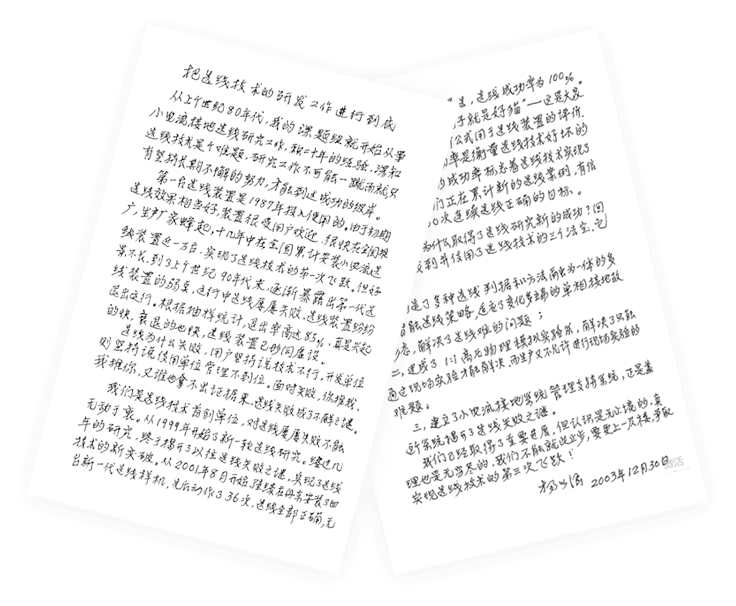 把选线技术的研发工作进行到底
从上个世纪80年代,我的课题组就开始从事
小电流接地选线研究工作,积二十年的经验,深知
选线技术是个难题,研究工作不可能一蹴而就,只
有坚持长期不懈的努力,才能到达成功的彼岸。
第一台选线装置是1987年投入使用的。由于初期
选线效果相当好,装置很受用户欢迎,很快在全国推
广,生产厂家蜂起,十几年中在全国累计安装小电流选
线装置近一万台,实现了选线技术的第一次飞跃。但好
景不长,到了上个世纪90年代末,逐渐暴露出第一代选
线装置的弱点,运行中选线屡屡失败,选线装置纷纷
退出运行。根据抽样统计,退出率高达85%,真是兴起
的快,衰退的也快,选线装置已形同虚设。
选线为什么失败,用户坚持说技术不行,开发单位
则坚持说使用单位管理不到位。面对失败,你推我,
我推你,又谁也拿不出证据来,选线失败成了不解之谜。
我们是选线技术首创单位,对选线屡屡失败不能
无动于衷。从1999年开始了新一轮选线研究。经过几
年的研究,终于揭开了以往选线失败之谜,实现了选线
技术的新突破。从2001年8月开始,陆续在丹东安装3四
台新一代选线样机,先后动作了336次,选线全部正确,无
,选线成功率为100%。
子就是好猫"—这是大众
公式用于选线装置的评价,
率是衡量选线技术好坏的
的成功率标志着选线技术实现了
们正在累计新的选线案例,有信
0次连续选线正确的目标。
为什么取得了选线研究新的成功?因
找到并使用了选线技术的三个法宝,它
造了多种选线判据和方法融为一体的多
智能选线策略,适应了变化多端的单相接地故
态,解决了选线难的问题;
二,建成了1:1高压物理模拟实验室,解决了只能
通过现场实验才能解决、而生产又不允许进行现场实验的
难题。
三,建立了小电流接地选线管理支持系统,正是靠
这个系统揭开了选线失败之谜。
我们已经取得了重要进展,但认识是无止境的,真
理也是无穷尽的,我们不能就此止步,要更上一层楼,争取
实现选线技术的第三次飞跃!
2003年12月30日